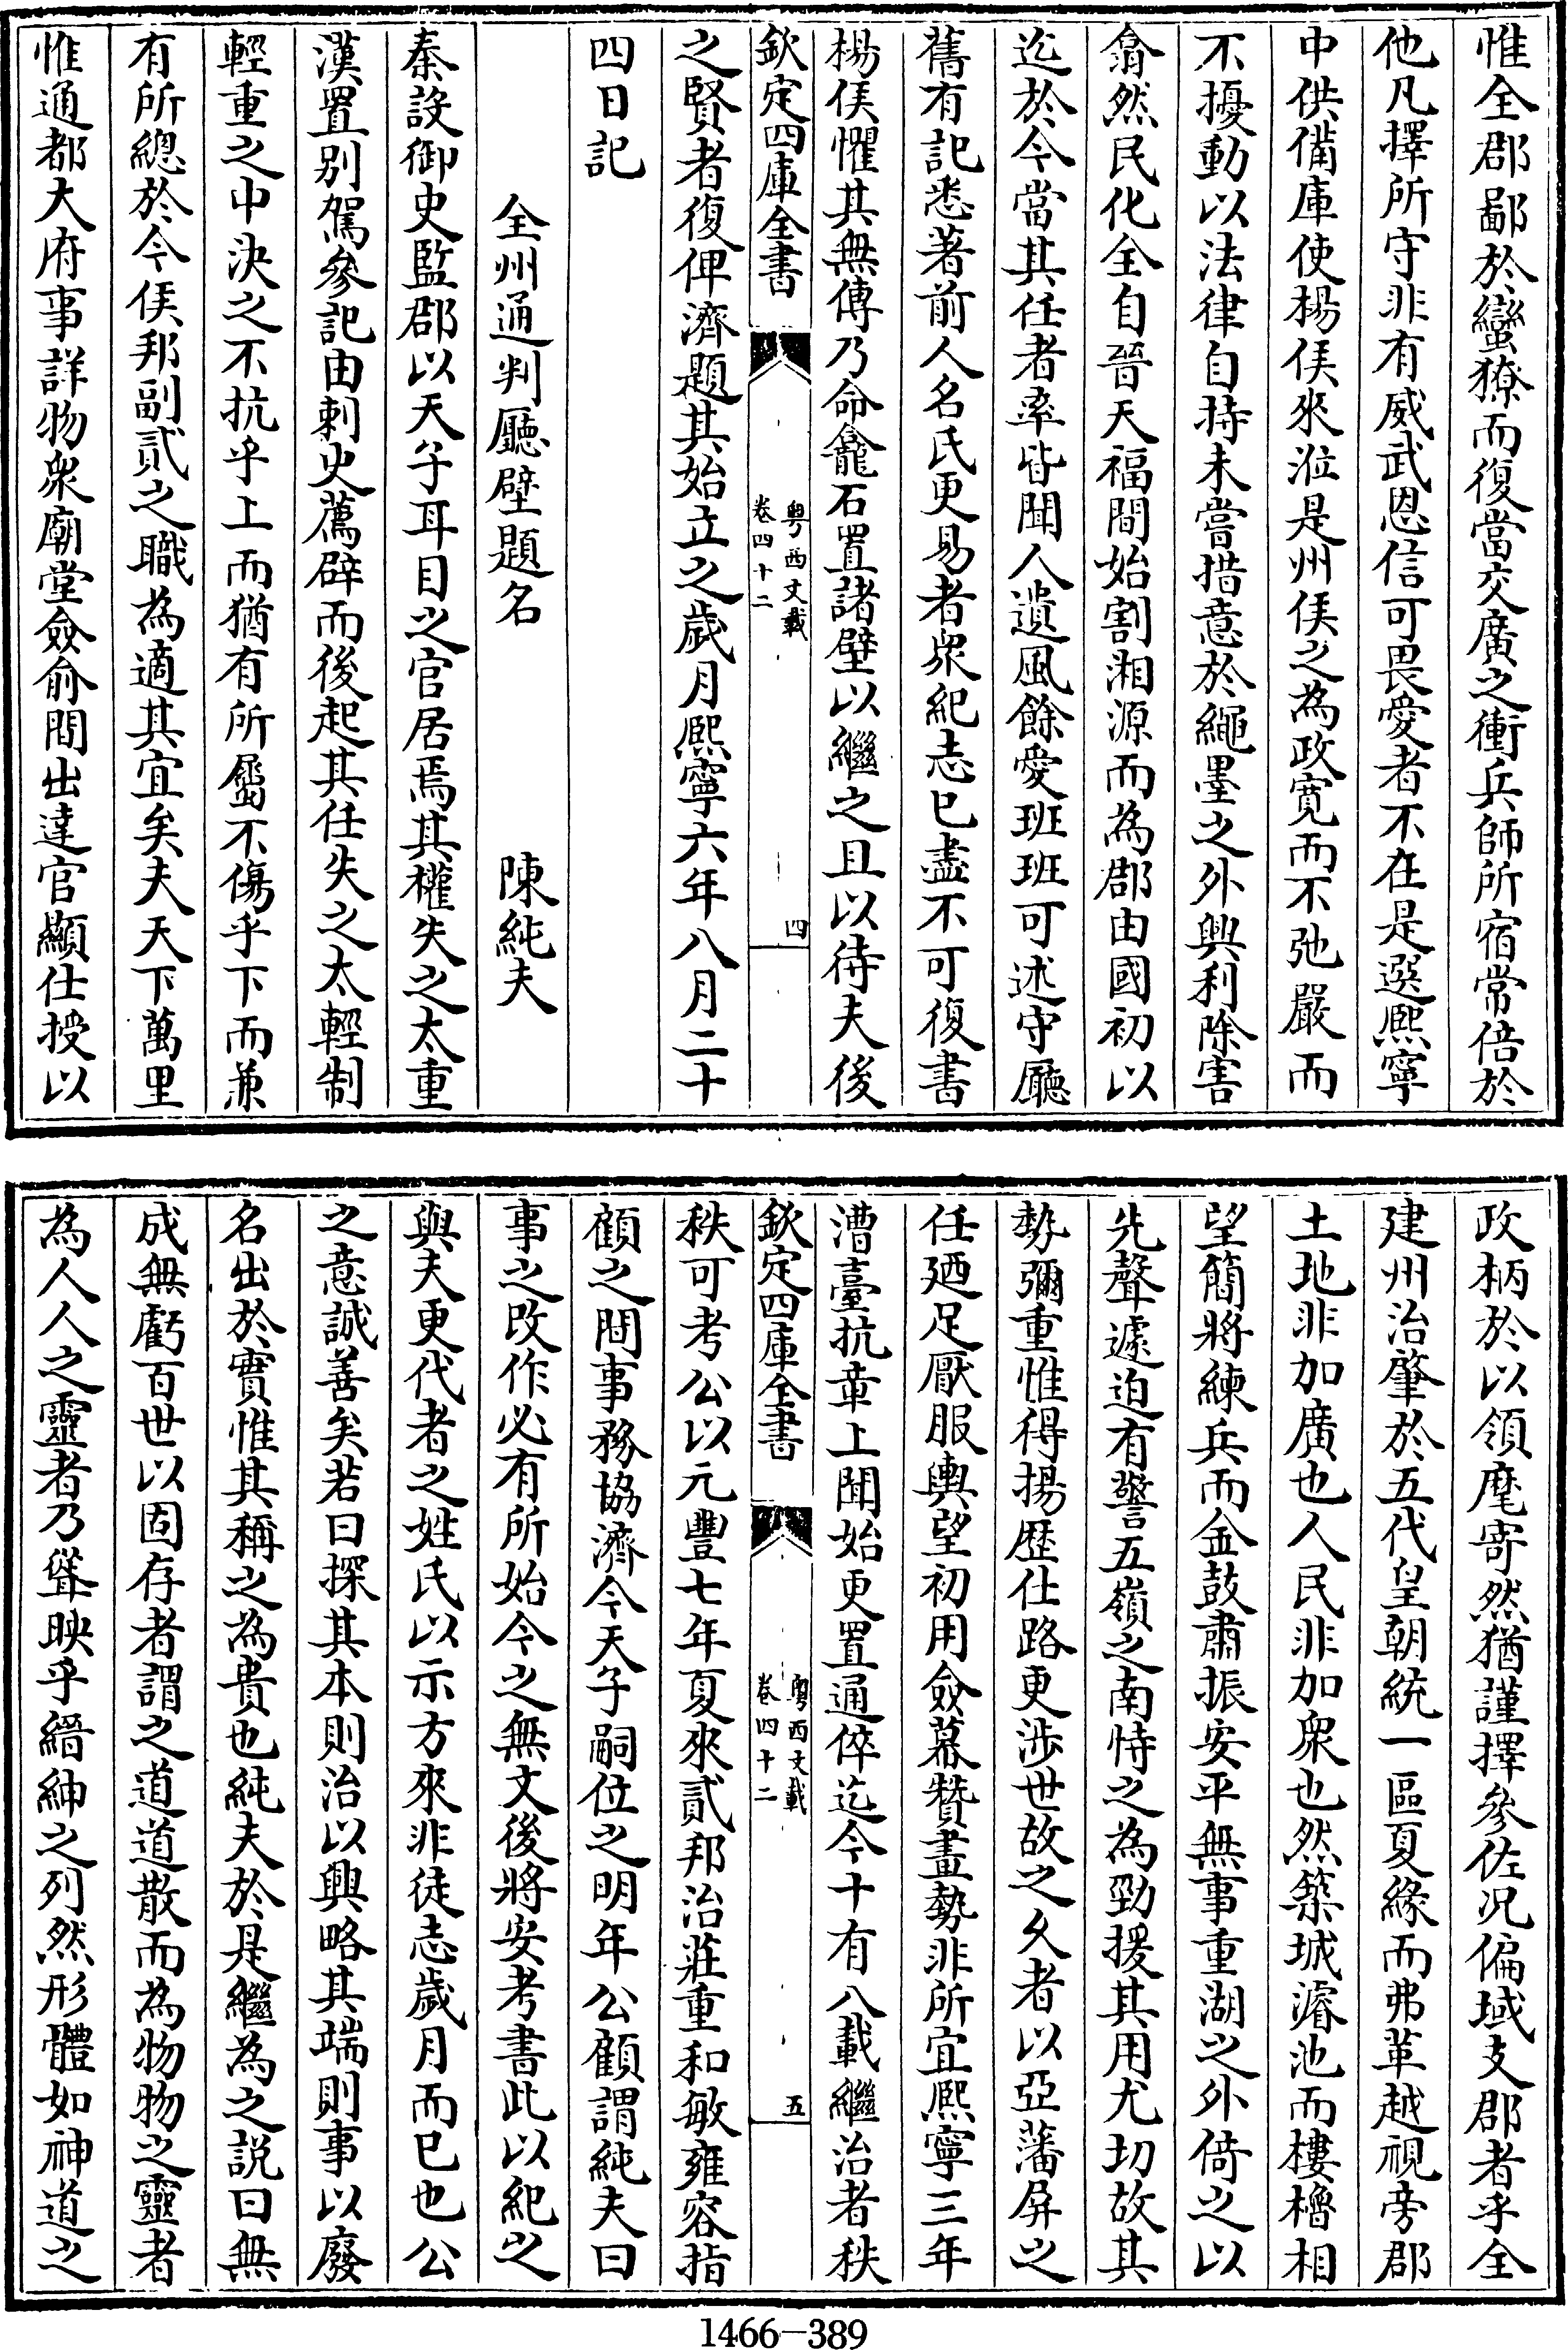 惟全郡鄙於蠻獠而復當交廣之衝兵師所宿常倍於
他凡擇所守非有威武恩信可畏愛者不在是選熙寧
中供備庫使楊侯來涖是州侯之為政寛而不弛嚴而
不擾動以法律自持未嘗措意於繩墨之外興利除害
翕然民化全自晉天福間始割湘源而為郡由國初以
迄於今當其任者率皆聞人遺風餘愛班班可述守廳
舊有記悉著前人名氏更易者衆紀志已盡不可復書
楊侯懼其無傳乃命龕石置諸壁以繼之且以待夫後
欽定四庫全書
粤西文載
卷四十二
四
之賢者復俾濟題其始立之歲月熙寧六年八月二十
四日記
全州通判廳壁題名
陳純夫
秦設御史監郡以天子耳目之官居焉其權失之太重
漢置別駕參記由刺史薦辟而後起其任失之太輕制
輕重之中決之不抗乎上而猶有所屬不傷乎下而兼
有所總於今侯邦副貳之職為適其宜矣夫天下萬里
惟通都大府事詳物衆廟堂僉俞間出達官顯仕授以
政柄於以領麾寄然猶謹擇參佐况偏域支郡者乎全
建州治肇於五代皇朝統一區夏緣而弗革越視旁郡
土地非加廣也人民非加衆也然築城濬池而樓櫓相
望簡將練兵而金鼓肅振安平無事重湖之外倚之以
先聲遽迫有警五嶺之南恃之為勁援其用尤切故其
勢彌重惟得揚歷仕路更涉世故之久者以亞藩屏之
任廼足厭服輿望初用僉幕贊畫勢非所宜熙寧三年
漕臺抗章上聞始更置通倅迄今十有八載繼治者秩
欽定四庫全書
粤西文載
卷四十二
五
秩可考公以元豐七年夏來貳邦治莊重和敏雍容指
顧之間事務協濟今天子嗣位之明年公顧謂純夫曰
事之改作必有所始今之無文後將安考書此以紀之
與夫更代者之姓氏以示方來非徒志歲月而已也公
之意誠善矣若曰探其本則治以興略其端則事以廢
名出於實惟其稱之為貴也純夫於是繼為之説曰無
成無虧百世以固存者謂之道道散而為物物之靈者
為人人之靈者乃聳映乎縉紳之列然形體如神道之
1466-389